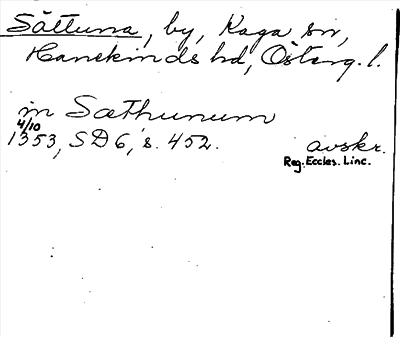 Sättuna, by, Kaga sn,
Hanekinds hd, Österg. l.
in Sæthunum
4/10
1353, SD 6, s. 452. avskr.
Reg. Eccles. Linc.